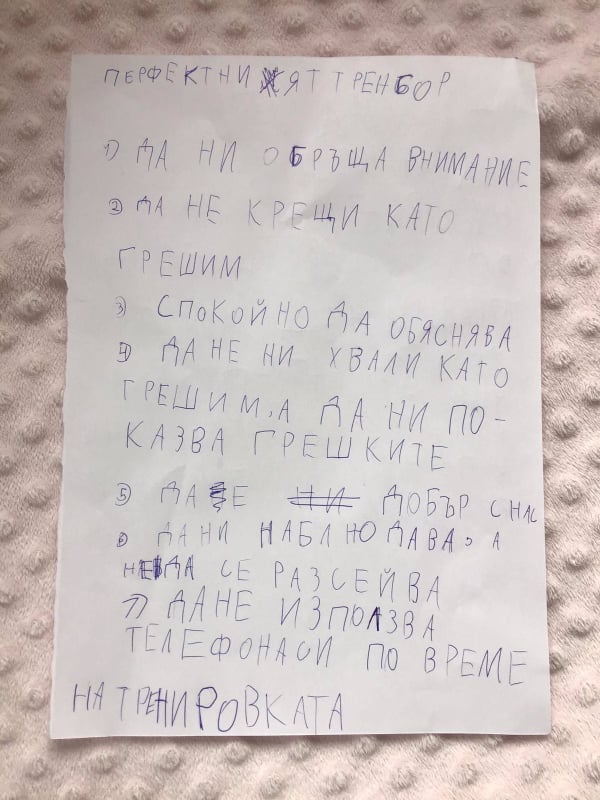 ПЕРФЕКТНИ ЯТ ТРЕНБОР
1) ДА НИ ОБРЪЩА ВНИМАНИЕ
2) ДА НЕ КРЕЩИ КАТО
ГРЕШИМ
3) СПОКОЙНО ДА ОБЯСНЯВА
4) ДА НЕ НИ ХВАЛИ КАТО
ГРЕШИМ, А ДА НИ ПО-
КАЗВА ГРЕШКИТЕ
5) ДА Е ДОБЪР С НАС
6) ДА НИ НАБЛЮДАВА, А
НЕ ДА СЕ РАЗСЕЙВА
7) ДА НЕ ИЗПОЛЗВА
ТЕЛЕФОНА СИ ПО ВРЕМЕ
НА ТРЕНИРОВКАТА